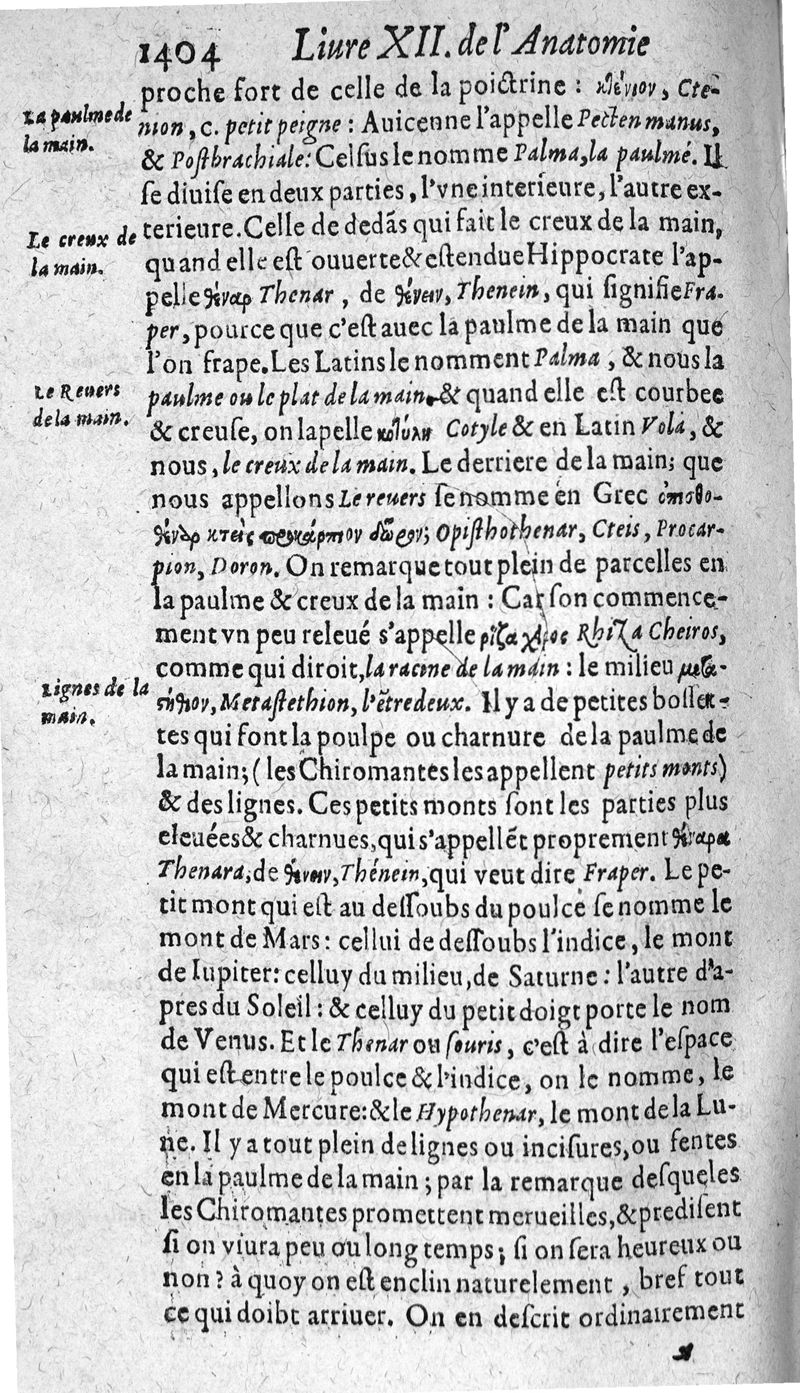 1404 Liure XII. de l'Anatomie
proche fort de celle de la poictrine : κτένιον, Cte-
La paulme de
la main.
nion, c. petit peigne : Auicenne l'appelle Pecten manus,
& Postbrachiale: Celsus le nomme Palma, la paulmé. Il
se diuise en deux parties, l'vne interieure, l'autre ex-
Le creux de
la main.
terieure. Celle de dedãs qui fait le creux de la main,
quand elle est ouuerte & estendue Hippocrate l'ap-
pelle θέναρ Thenar, de θένειν, Thenein, qui signifie Fra-
per, pource que c'est auec la paulme de la main que
l'on frape. Les Latins le nomment Palma, & nous la
Le Reuers
de la main.
paulme ou le plat de la main, & quand elle est courbee
& creuse, on lapelle κοτύλη Cotyle & en Latin Vola, &
nous, le creux de la main. Le derriere de la main; que
nous appellons Le reuers se nomme en Grec ὀπισθο-
θέναρ κτεὶς προκάρπιον δῶρον; Opisthothenar, Cteis, Procar-
pion, Doron. On remarque tout plein de parcelles en
la paulme & creux de la main : Car son commence-
ment vn peu releué s'appelle ῥίζα χειρος Rhiza Cheiros,
comme qui diroit, la racine de la main : le milieu μετα-
Lignes de la
main.
στήθιον, Metastethion, l'ẽtredeux. Il y a de petites bosset-
tes qui font la poulpe ou charnure de la paulme de
la main; (les Chiromantes les appellent petits monts)
& des lignes. Ces petits monts sont les parties plus
eleuées & charnues, qui s'appellẽt proprement θέναρα
Thenara, de θένειν, Thénein, qui veut dire Fraper. Le pe-
tit mont qui est au dessoubs du poulce se nomme le
mont de Mars: cellui de dessoubs l'indice, le mont
de Iupiter: celluy du milieu, de Saturne : l'autre d'a-
pres du Soleil : & celluy du petit doigt porte le nom
de Venus. Et le Thenar ou souris, c'est à dire l'espace
qui est entre le poulce & l'indice, on le nomme, le
mont de Mercure: & le Hypothenar, le mont de la Lu-
ne. Il y a tout plein de lignes ou incisures, ou fentes
en la paulme de la main ; par la remarque desqueles
les Chiromantes promettent merueilles, & predisent
si on viura peu ou long temps; si on sera heureux ou
non ? à quoy on est enclin naturelement, bref tout
ce qui doibt arriuer. On en descrit ordinairement